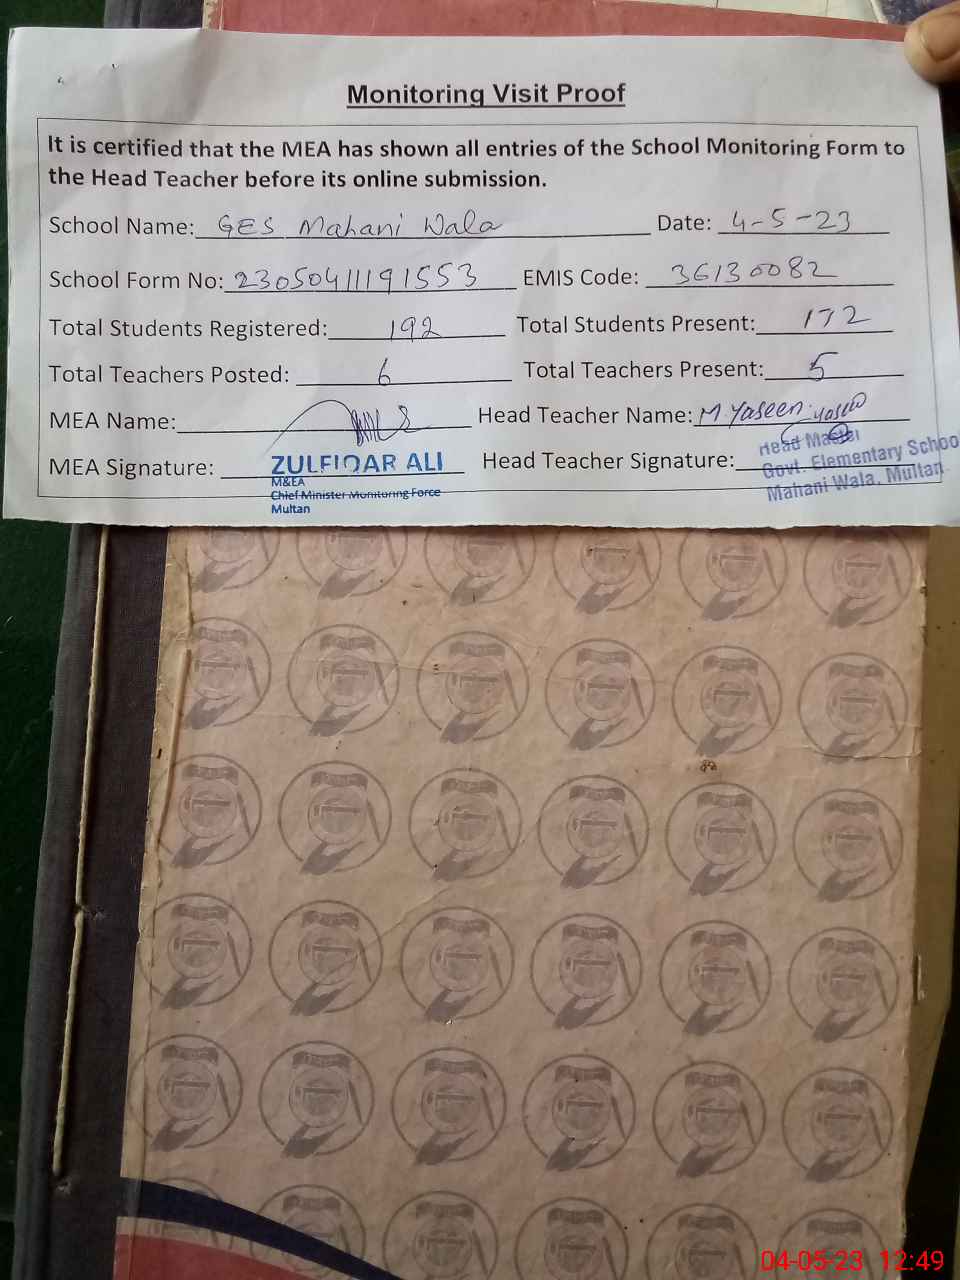 Monitoring Visit Proof
It is certified that the MEA has shown all entries of the School Monitoring Form to
the Head Teacher before its online submission.
School Name: GES Mahani Wala Date: 4-5-23
School Form No: 23050411191553 EMIS Code: 36130082
Total Students Registered: 192 Total Students Present: 172
Total Teachers Posted: 6 Total Teachers Present: 5
MEA Name: Head Teacher Name: M. Yaseen
MEA Signature: ZULFIQAR ALI Head Teacher Signature: Head Master
M&EA Govt. Elementary School
Chief Minister Monitoring Force Mahani Wala, Multan
Multan
04-05-23 12:49